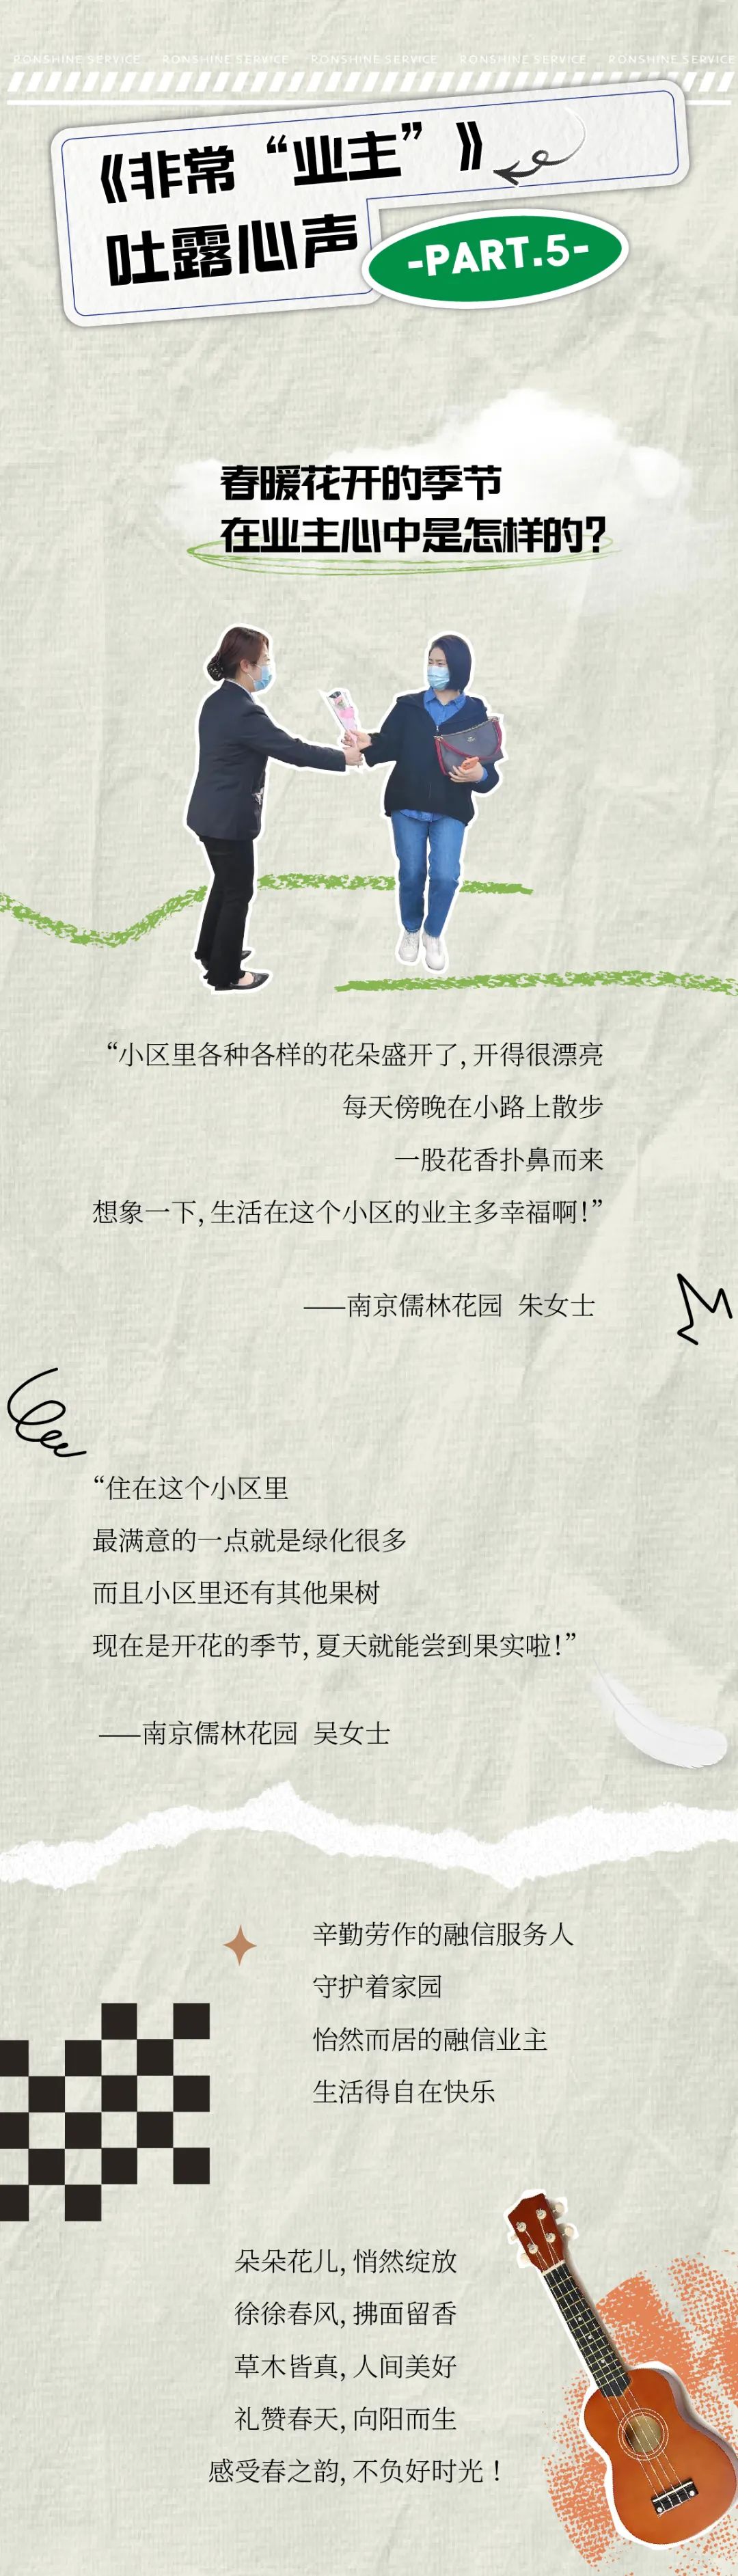 RONSHINE SERVICE RONSHINE SERVICE RONSHINE SERVICE RONSHINE SERVICE RONSHINE SERVICE
《非常“业主”》
吐露心声
-PART.5-
春暖花开的季节
在业主心中是怎样的?
“小区里各种各样的花朵盛开了,开得很漂亮
每天傍晚在小路上散步
一股花香扑鼻而来
想象一下,生活在这个小区的业主多幸福啊!”
——南京儒林花园 朱女士
“住在这个小区里
最满意的一点就是绿化很多
而且小区里还有其他果树
现在是开花的季节,夏天就能尝到果实啦!”
——南京儒林花园 吴女士
辛勤劳作的融信服务人
守护着家园
怡然而居的融信业主
生活得自在快乐
朵朵花儿,悄然绽放
徐徐春风,拂面留香
草木皆真,人间美好
礼赞春天,向阳而生
感受春之韵,不负好时光！